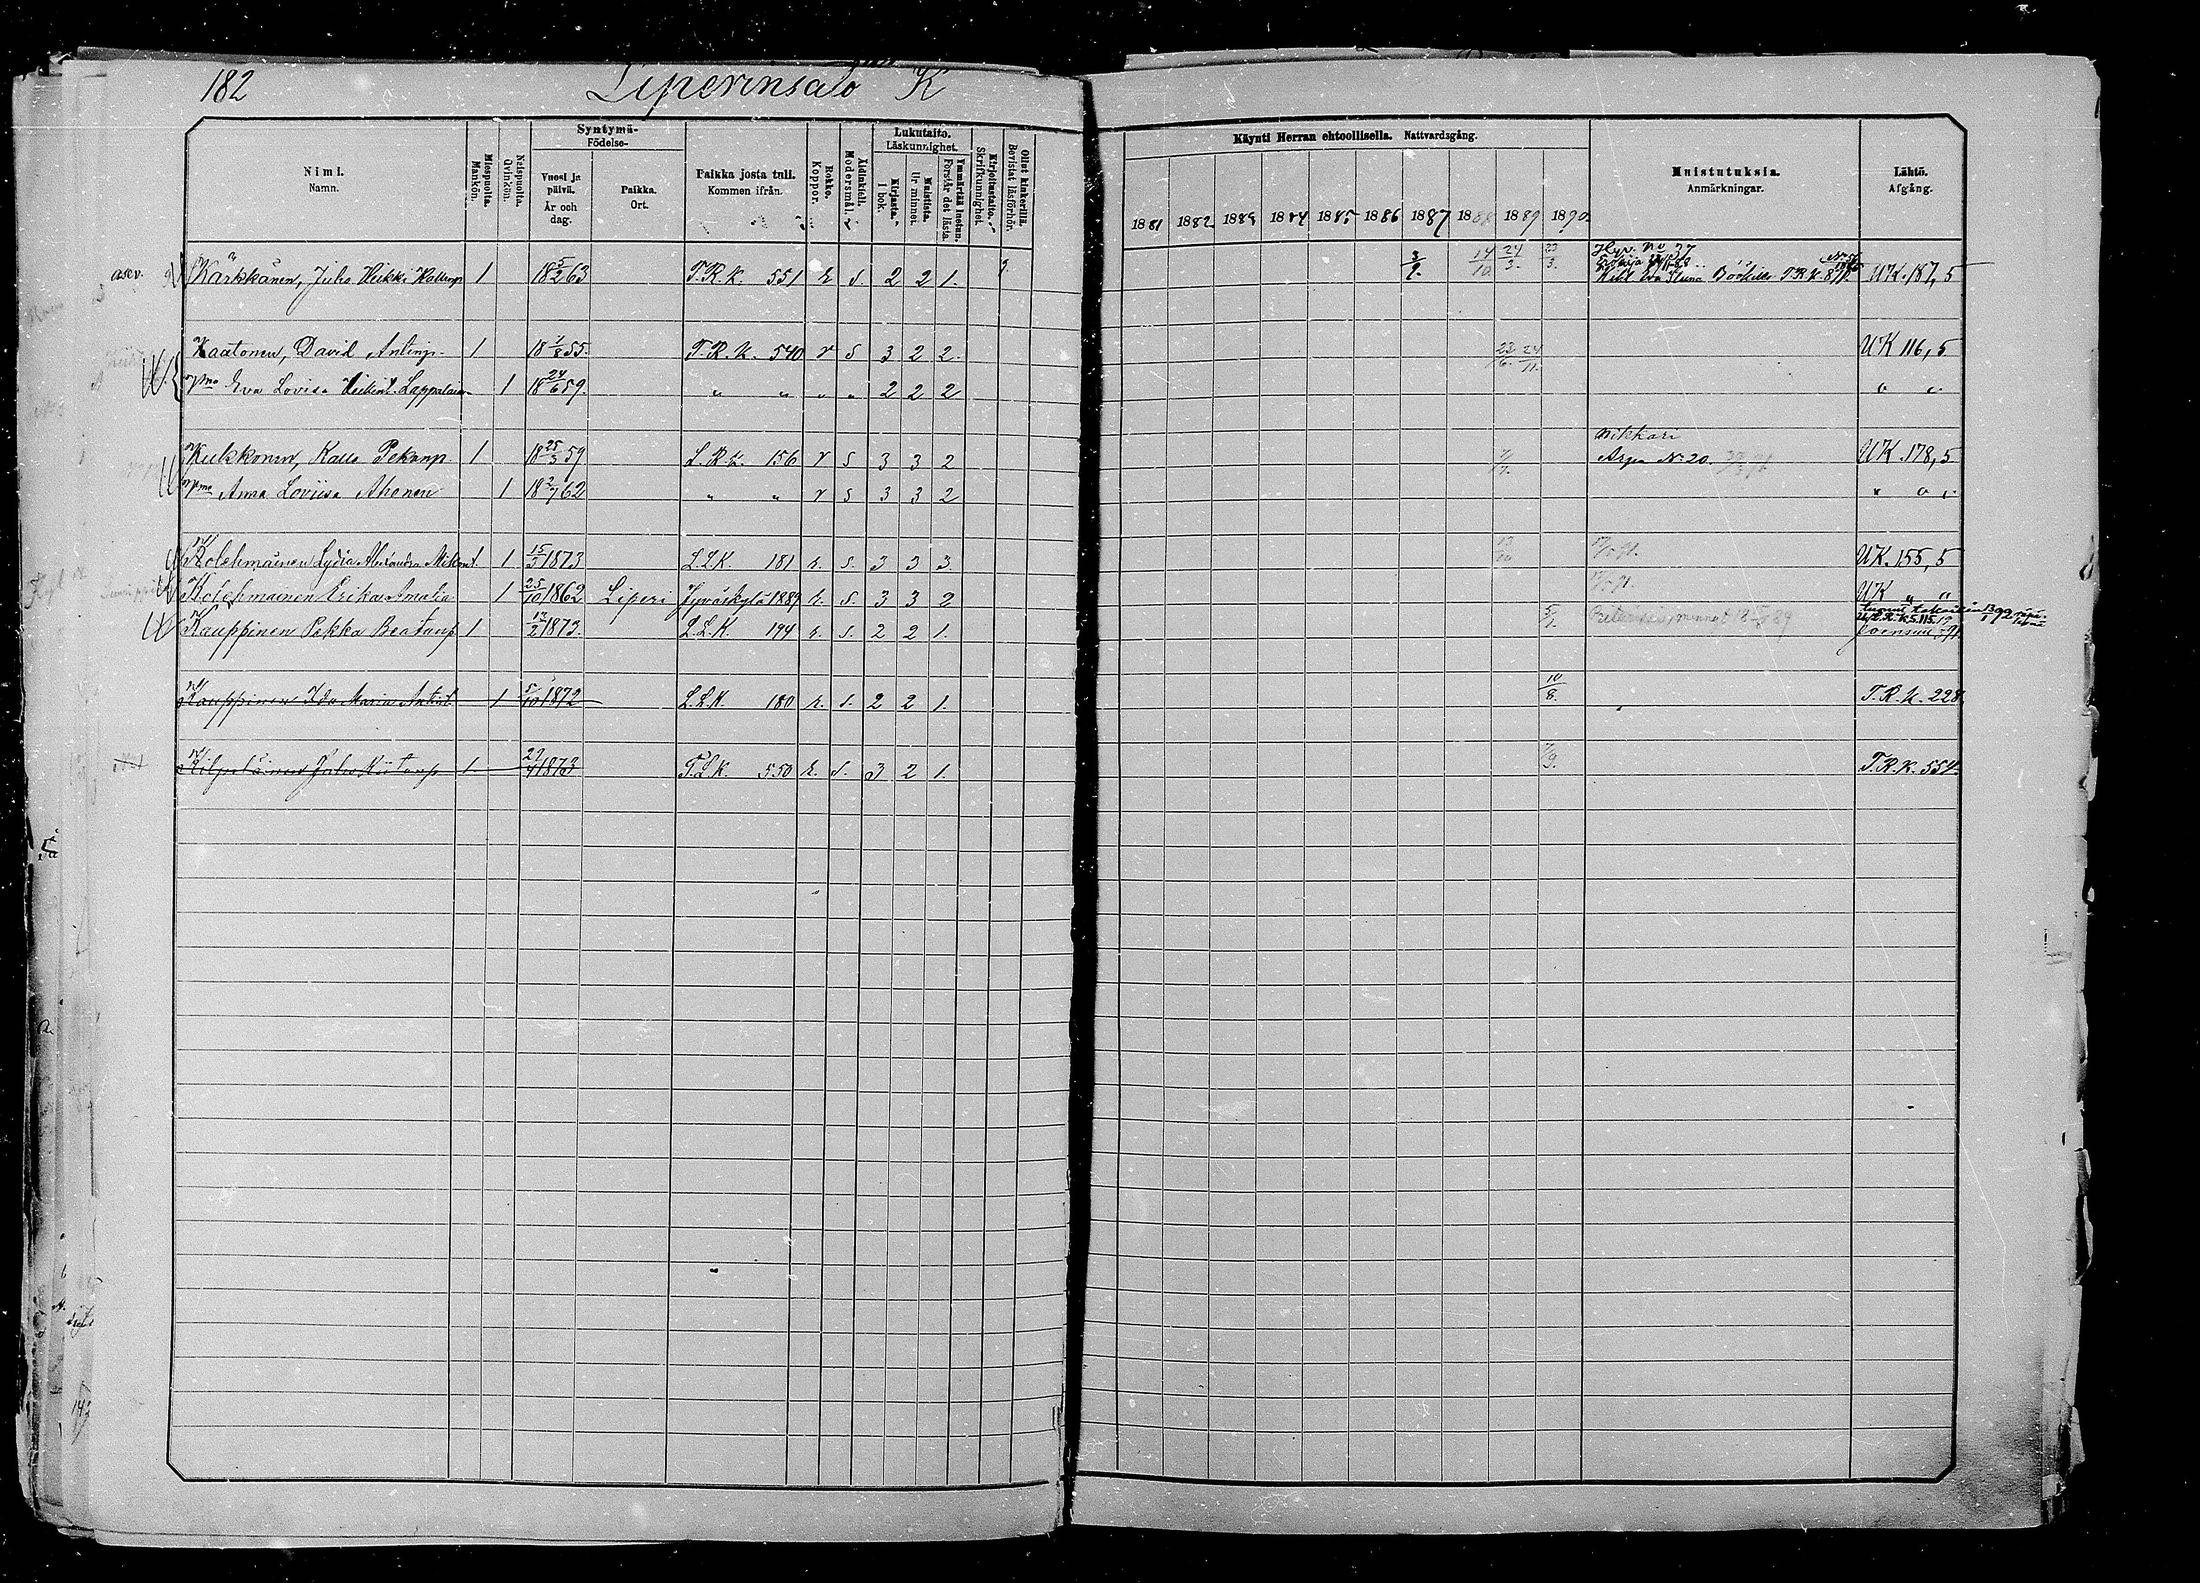 182 Liperinsalo K
Nimi. Namn.
Miespuolia. Mankön.
Naispuolia. Qvinkön.
Syntymä- Födelse-
Vuosi ja päivä. År och dag.
Paikka. Ort.
Paikka josta tuli. Kommen ifrån.
Rokko. Koppor.
Äidinkieli. Modersmål.
Lukutaito. Läskunnighet.
Kirjasta. I bok.
Muistista. Ur minnet.
Ymmärtää luetun. Förstår det lästa.
Kirjoitustaito. Skrifkunnighet.
Ollut kinkerillä. Bevistat läsförhör.
Käynti Herran ehtoollisella. Nattvardsgång.
1881 1882 1883 1884 1885 1886 1887 1888 1889 1890
Muistutuksia. Anmärkningar.
Lähtö. Afgång.
asev. Kärkkänen, Juho Heikki 1 18 5/2 63 T.R.K. 551 r. s. 2 2 1. 14/10 24/3. 23/3. Hyv. No 27 UK. 187, 5
Kaatonen, David Antinp. 1 18 1/8 55. T.R.K. 540 r s 3 2 2. 24/11. UK 116, 5
Vmo Eva Lovisa Lappalainen 1 18 24/6 59. " " " " 2 2 2 " "
Kukkonen, Kalle Pekanp. 1 18 25/3 59 L.R.K. 156 r s 3 3 2 Nikkari Arpa No 20. UK. 178, 5
Vmo Anna Loviisa Ahonen 1 18 2/7 62 " " r s 3 3 2 " " "
Kolehmainen Lydia Alexandra Mikont. 1 15/3 1873 L.L.K. 181 r. s. 3 3 3. UK. 155, 5
Kolehmainen Erika Amalia 1 25/10 1862 Liperi Jyväskylä 1889 r. s. 3 3 2 UK " "
Kauppinen Pekka 1 12/2 1873. L.L.K. 194 r. s. 2 2 1. 5/7. Joensuu
Kauppinen Ida Maria Antint. 1 5/10 1872 L.L.K. 180 r. s. 2 2 1. 10/8. T.R.K. 228
Kilpeläinen Juho 1. 27/4 1873 T.L.K. 550 r. s. 3 2 1. T.R.K. 554.